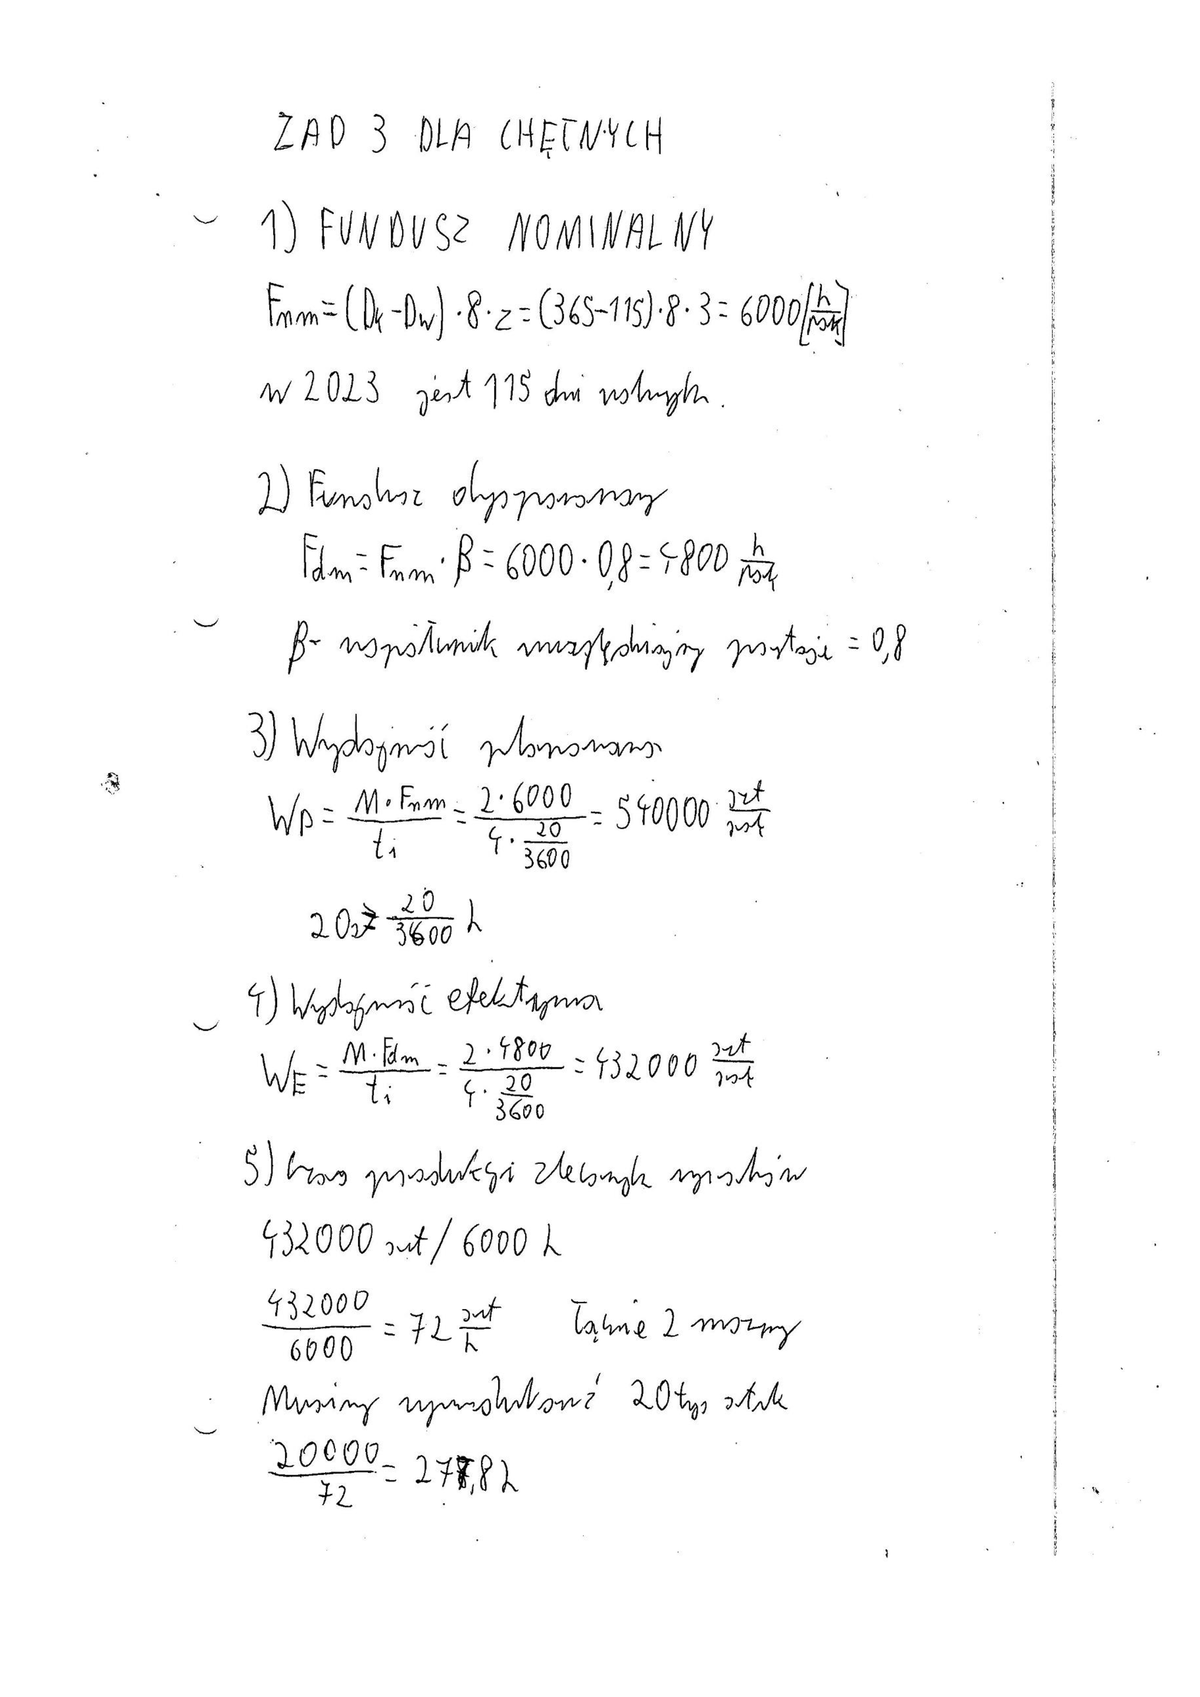 ZAD 3 DLA CHĘTNYCH
1) FUNDUSZ NOMINALNY
Fnm = (Dk - Dw) · 8 · z = (365-115) · 8 · 3 = 6000 [h/rok]
w 2023 jest 115 dni wolnych.
2) Fundusz dysponowany
Fdm = Fnm · β = 6000 · 0,8 = 4800 h/rok
β - współczynnik uwzględniający postoje = 0,8
3) Wydajność planowana
WP = M · Fnm / ti = 2 · 6000 / (4 · 20/3600) = 540000 szt/rok
20s = 20/3600 h
4) Wydajność efektywna
WE = M · Fdm / ti = 2 · 4800 / (4 · 20/3600) = 432000 szt/rok
5) Czas produkcji zleconych wyrobów
432000 szt / 6000 h
432000/6000 = 72 szt/h łącznie 2 maszyny
Musimy wyprodukować 20 tys sztuk
20000/72 = 277,8 h